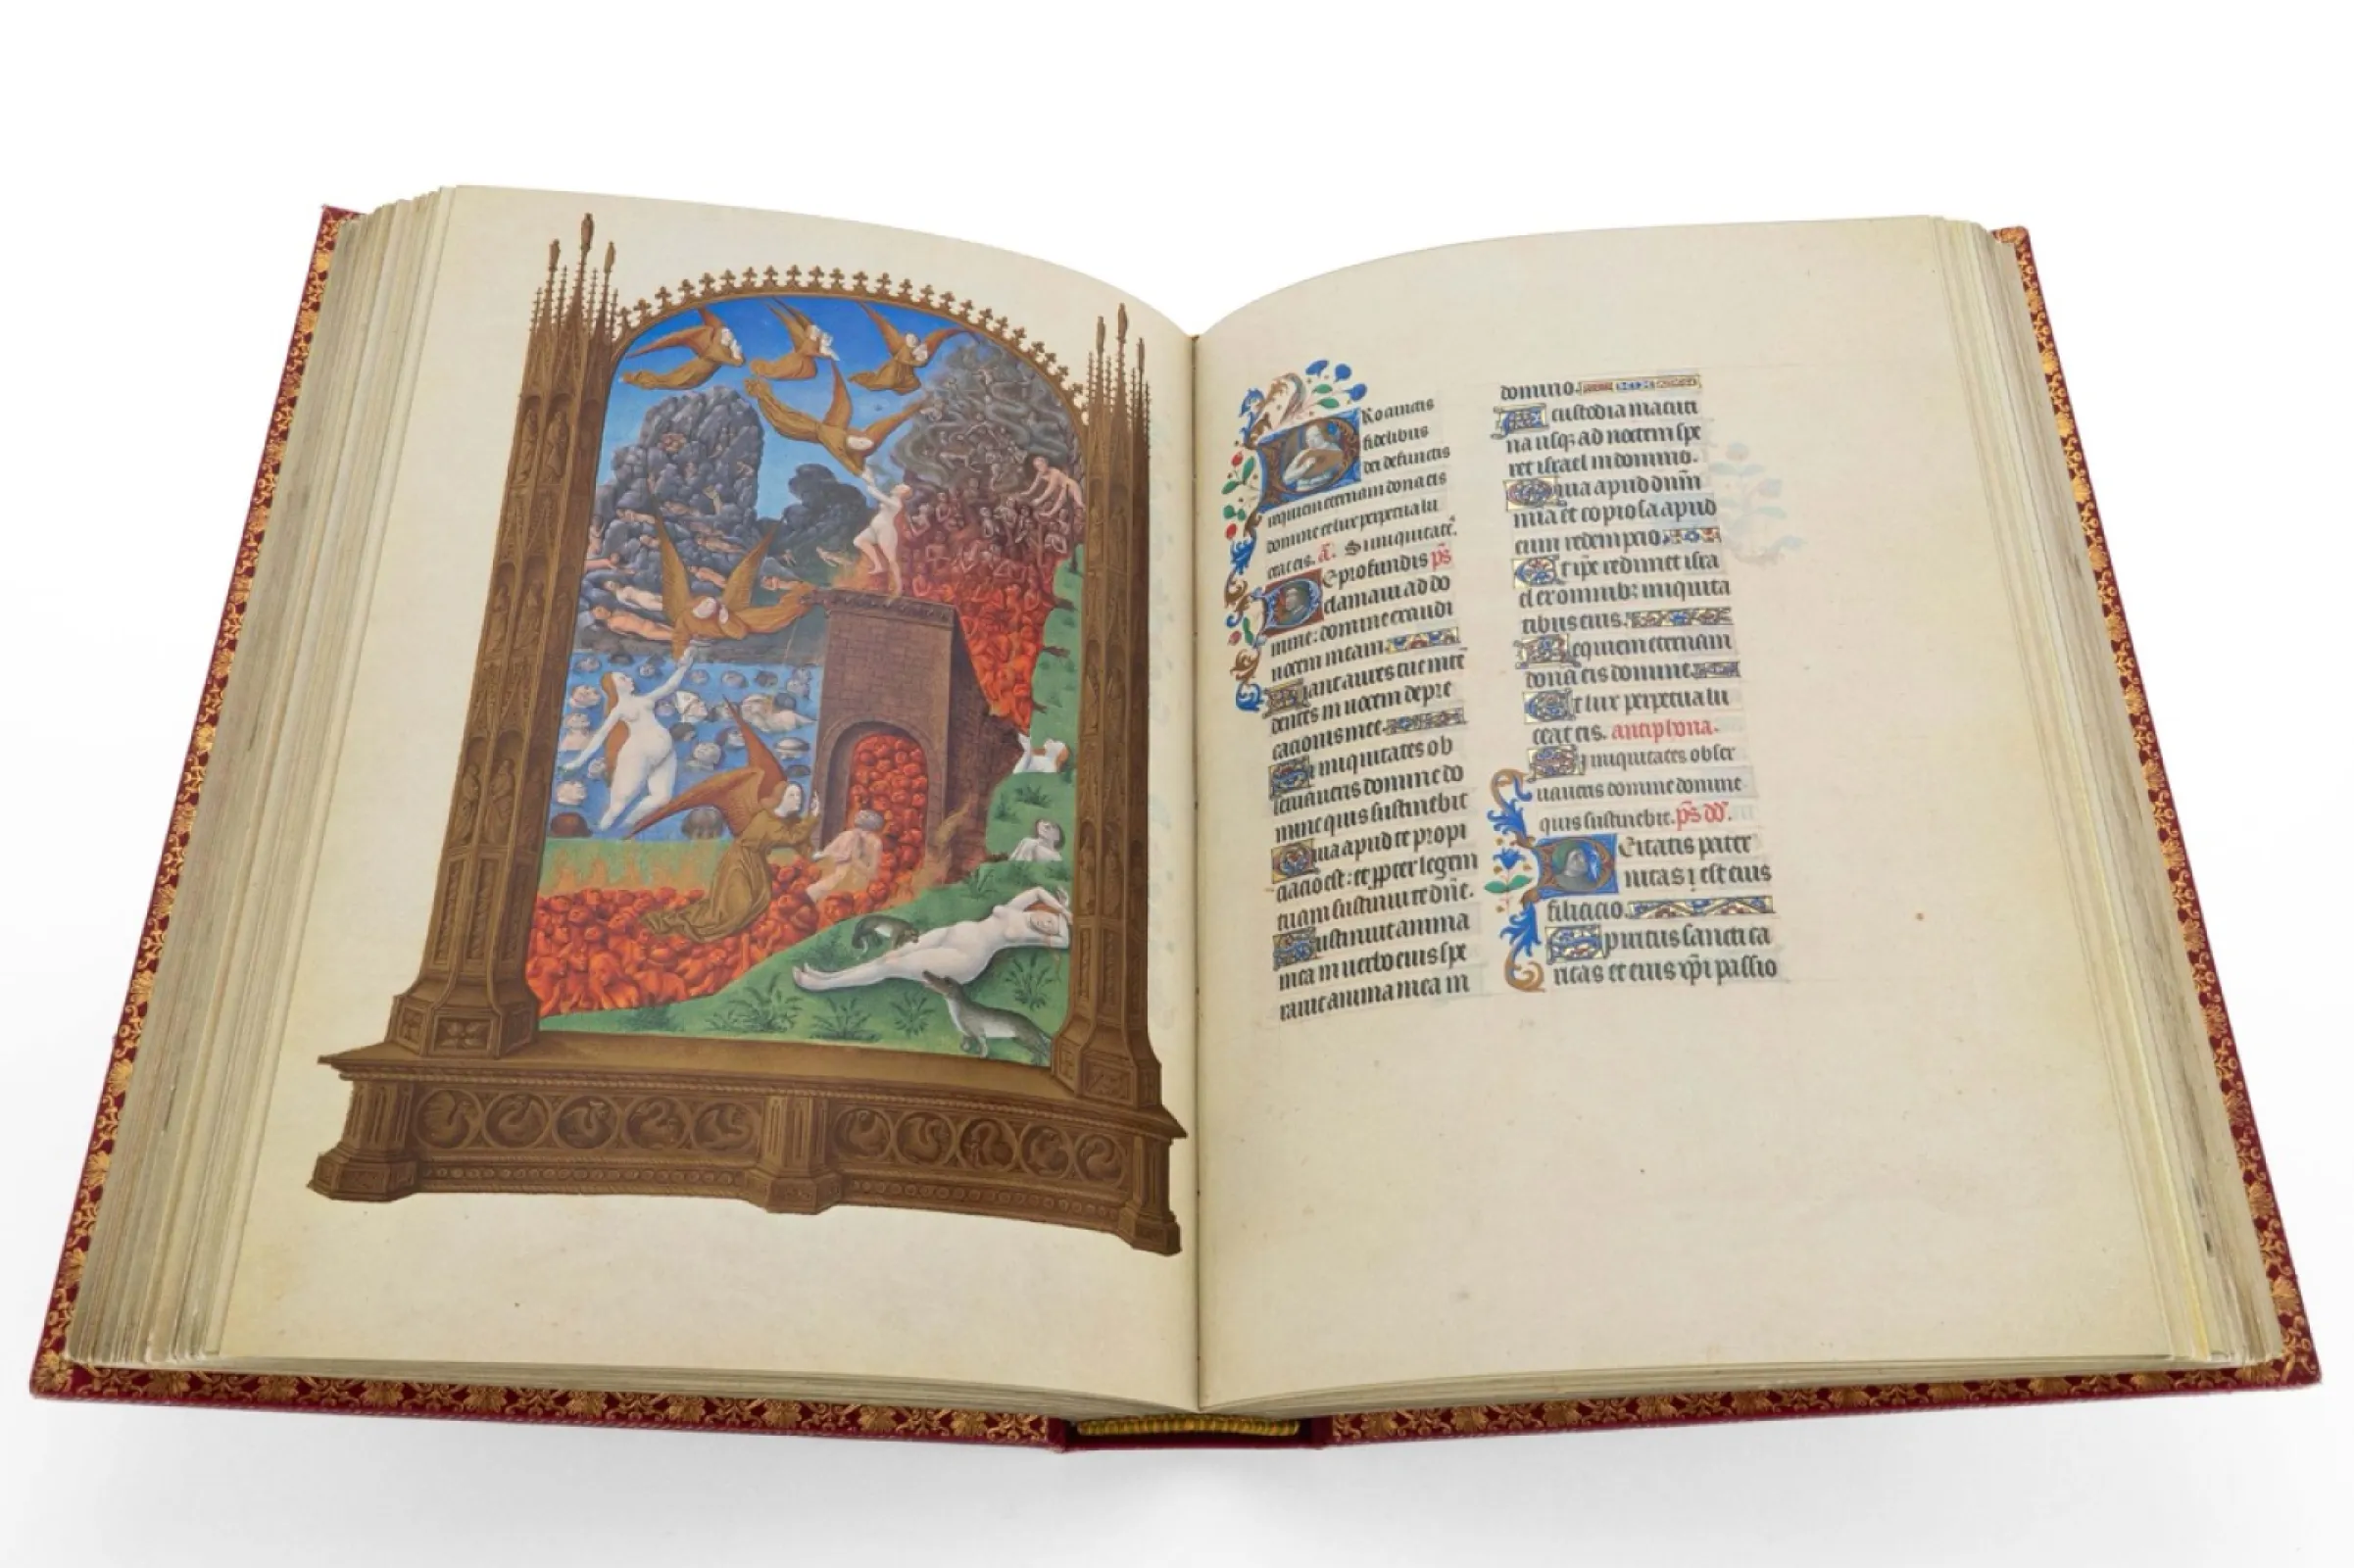 PRo cunctis
fidelibus
dei defunctis
requiem eternam dona eis
domine et lux perpetua lu
ceat eis. a̅. Si iniquitate̅.
De profundis ps̅
clamavi ad do
mine: domine exaudi
vocem meam
Fiant aures tue inte̅
dentes in vocem depre
cationis mee.
Si iniquitates ob
servaveris domine do
mine quis sustinebit
Quia apud te propi
ciacio est: et ꝓpter legem
tuam sustinui te dn̅e.
Sustinuit anima
mea in verbo eius spe
ravit anima mea in
domino.
A custodia matuti
na usqꝫ ad noctem spe
ret israel in domino.
Quia apud dn̅m
mia et copiosa apud
eum redempcio
Et ip̅e redimet isra
el ex omnibꝫ iniquita
tibus eius.
Requiem eternam
dona eis domine
Et lux perpetua lu
ceat eis. antiphona.
Si iniquitates obser
vaveris domine domine
quis sustinebit. ps̅
Deitatis pater
nitas est eius
filiacio.
Spiritus sancti ca
ritas et eius xp̅i passio